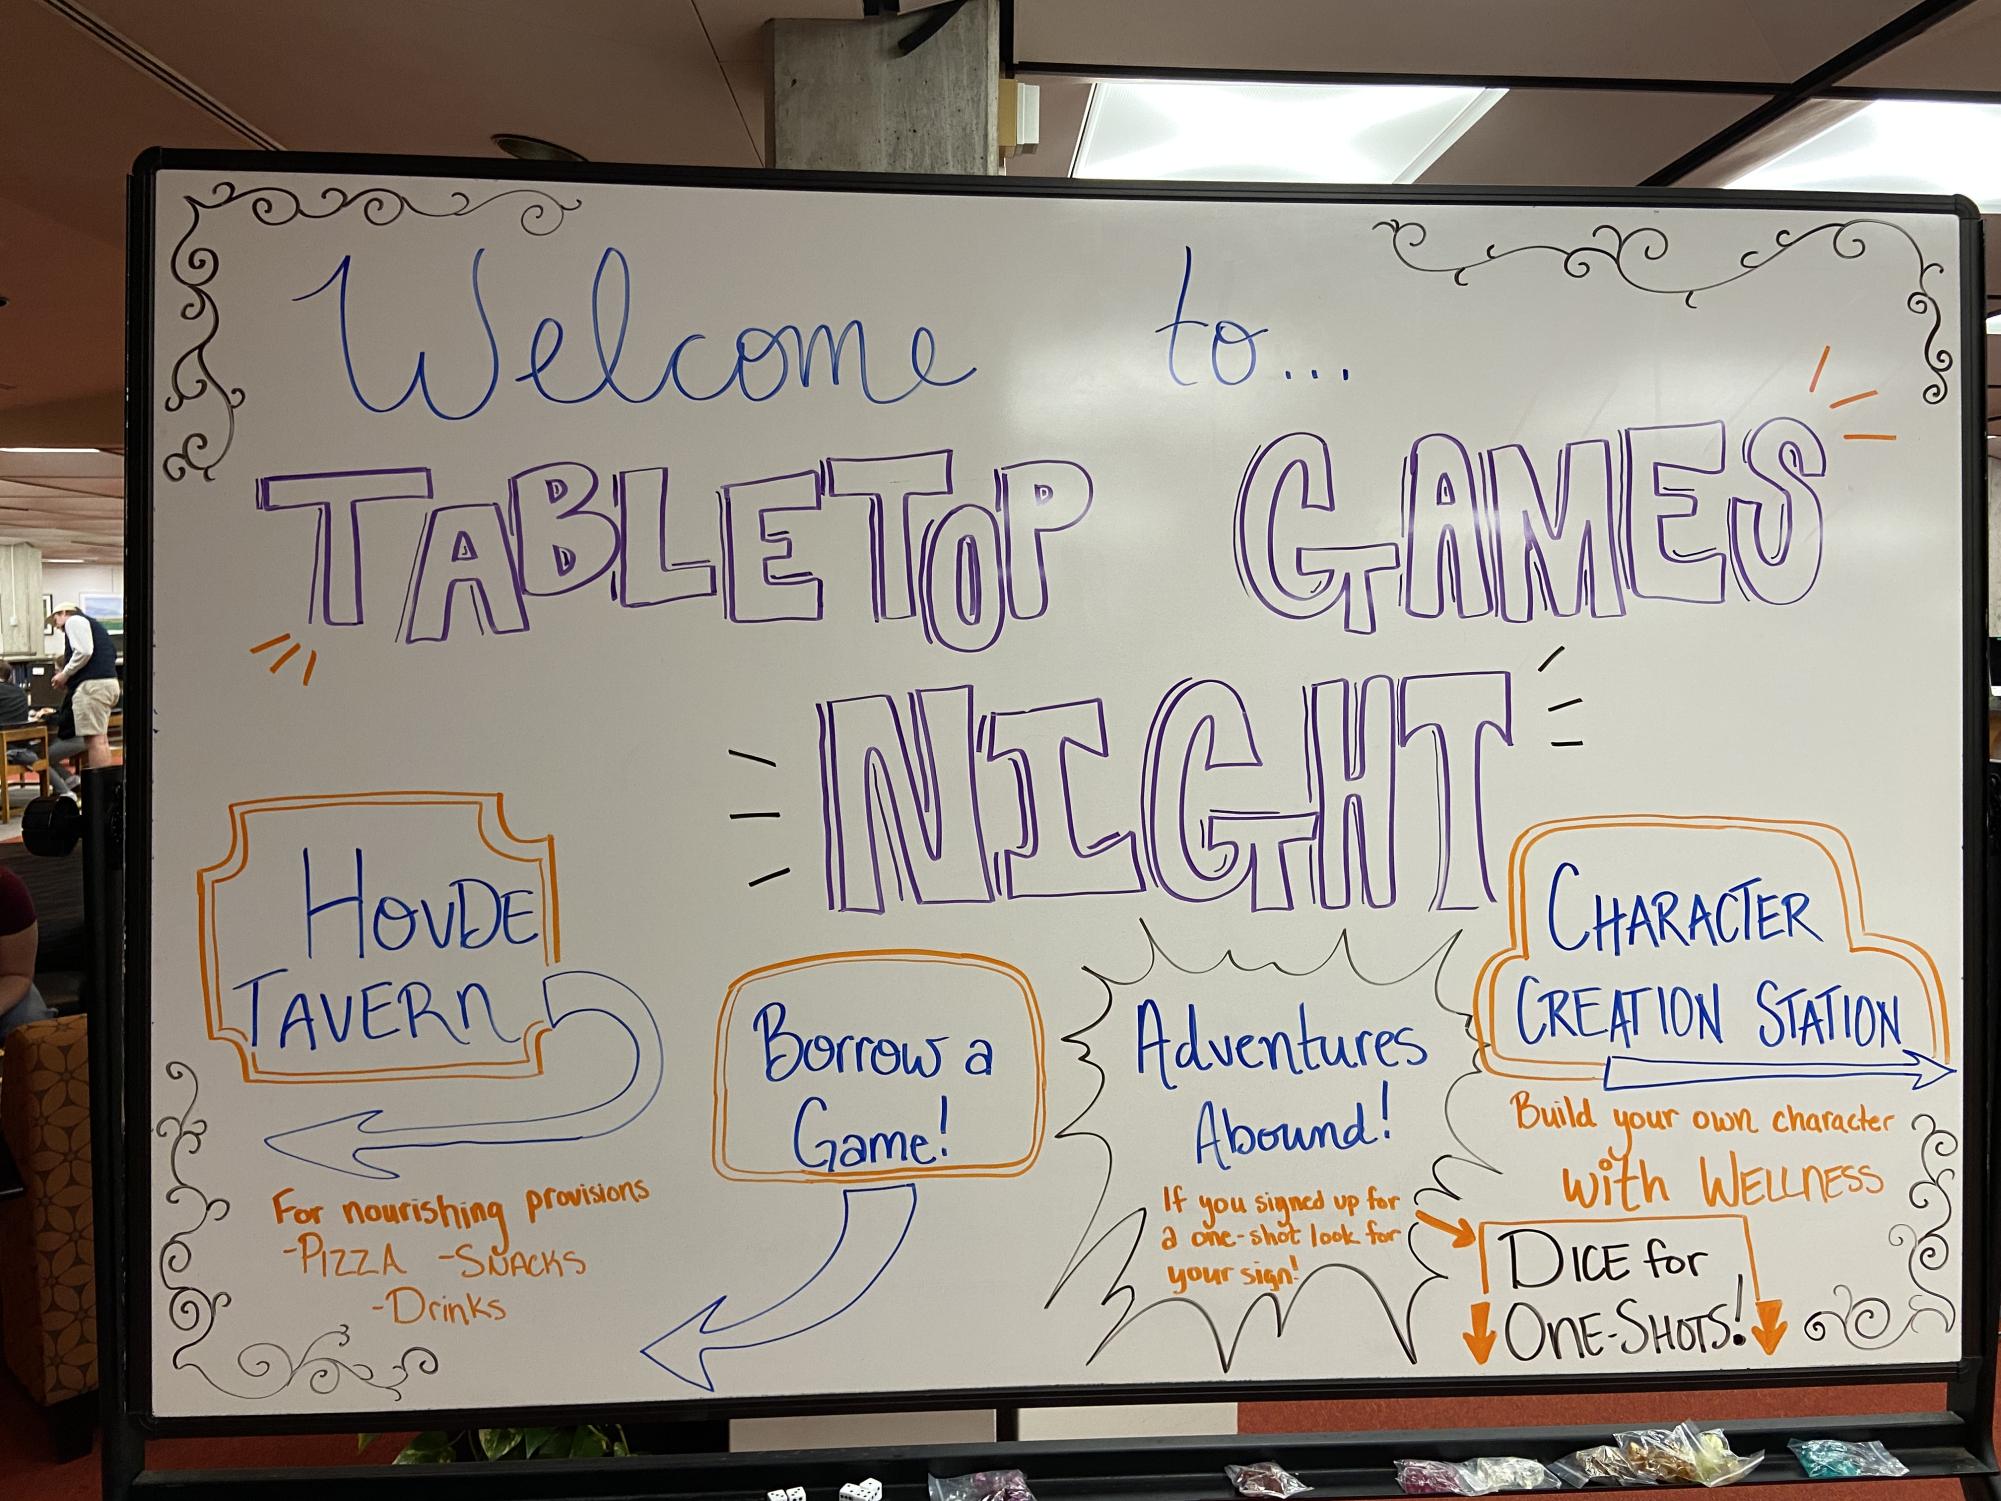 Welcome to...
TABLETOP GAMES
NIGHT
HOVDE
TAVERN
For nourishing provisions
-PIZZA -SNACKS
-Drinks
Borrow a
Game!
Adventures
Abound!
If you signed up for
a one-shot look for
your sign!
CHARACTER
CREATION STATION
Build your own character
with WELLNESS
DICE for
ONE-SHOTS!